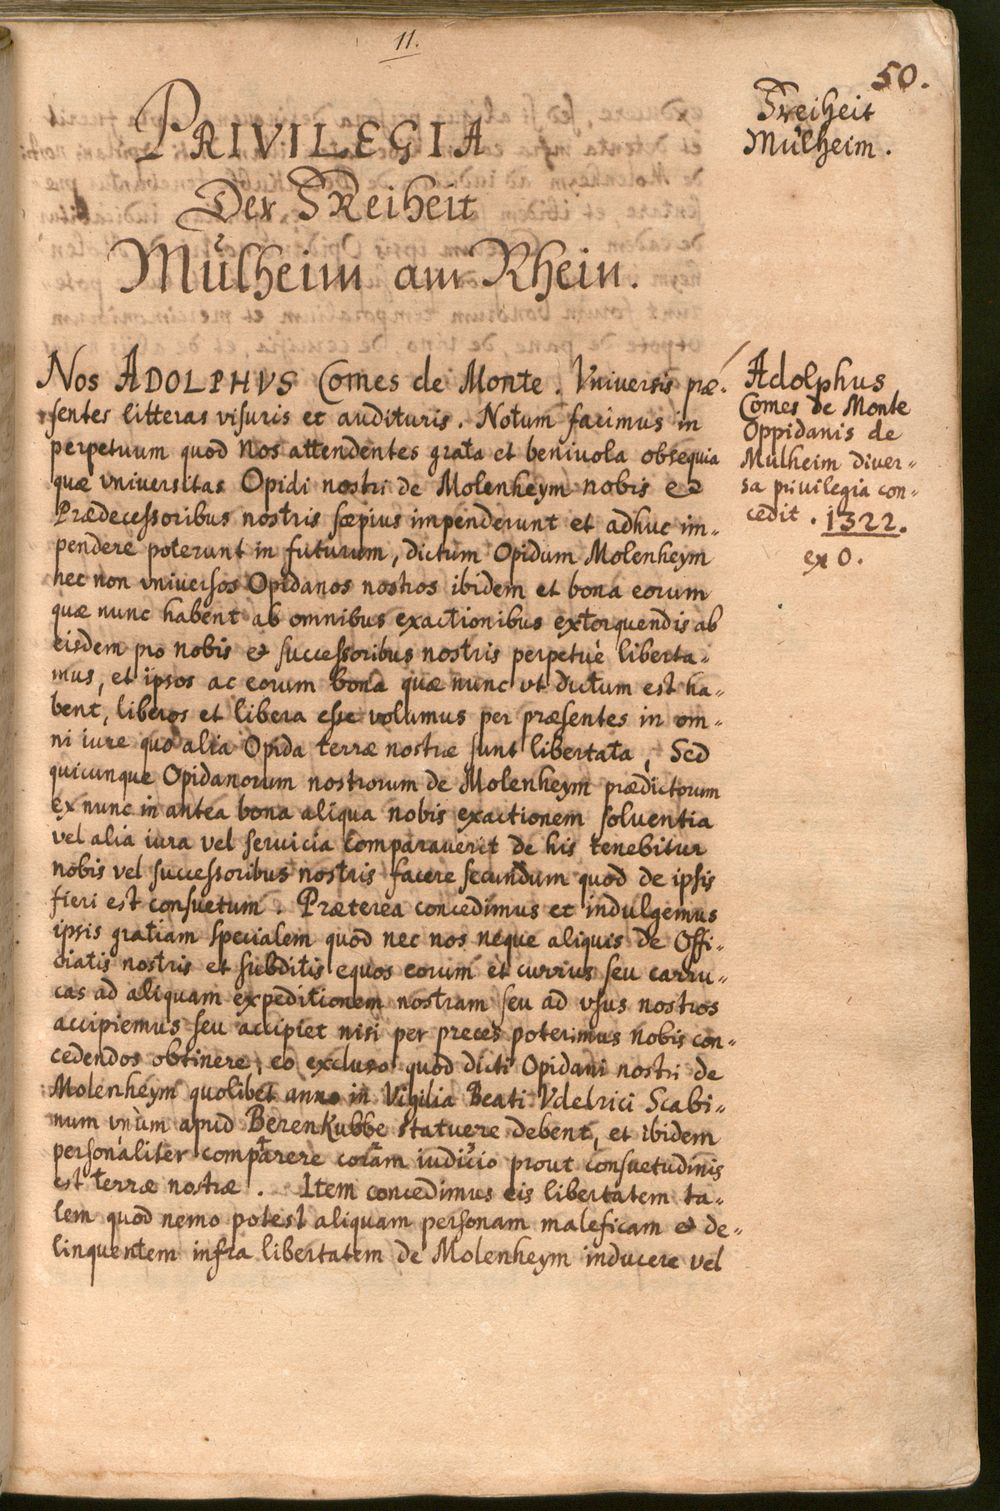 11.
50.
Freiheit
Mülheim.
PRIVILEGIA
Der FReiheit
Mülheim am Rhein.
Nos ADOLPHVS Comes de Monte. Vniversis præ-
sentes litteras visuris et audituris. Notum facimus in
perpetuum quod Nos attendentes grata et beniuola obsequia
quæ vniversitas Opidi nostri de Molenheym nobis et
Prædecessoribus nostris sæpius impenderunt et adhuc im-
pendere poterunt in futurum, dictum Opidum Molenheym
nec non vniversos Opidanos nostros ibidem et bona eorum
quæ nunc habent ab omnibus exactionibus extorquendis ab
eisdem pro nobis et successoribus nostris perpetuè liberta-
mus, et ipsos ac eorum bona quæ nunc vt dictum est ha-
bent, liberos et libera esse volumus per præsentes in om-
ni iure quo alia Opida terræ nostræ sunt libertata, Sed
quicunque Opidanorum nostrorum de Molenheym prædictorum
ex nunc in antea bona aliqua nobis exactionem soluentia
vel alia iura vel seruicia comparauerit de his tenebitur
nobis vel successoribus nostris facere secundum quod de ipsis
fieri est consuetum. Præterea concedimus et indulgemus
ipsis gratiam specialem quod nec nos neque aliquis de Offi-
ciatis nostris et subditis equos eorum et currus seu carru-
cas ad aliquam expeditionem nostram seu ad vsus nostros
accipiemus seu accipiet nisi per preces poterimus nobis con-
cedendos obtinere, eo excluso quod dicti Opidani nostri de
Molenheym quolibet anno in Vigilia Beati Vdelrici Scabi-
num vnùm apud BerenKubbe statuere debent, et ibidem
personaliter comparere coram iudicio prout consuetudinis
est terræ nostræ. Item concedimus eis libertatem ta-
lem quod nemo potest aliquam personam maleficam et de-
linquentem infra libertatem de Molenheym inducere vel
Adolphus
Comes de Monte
Oppidanis de
Mulheim diver-
sa privilegia con-
cedit. 1322.
ex O.